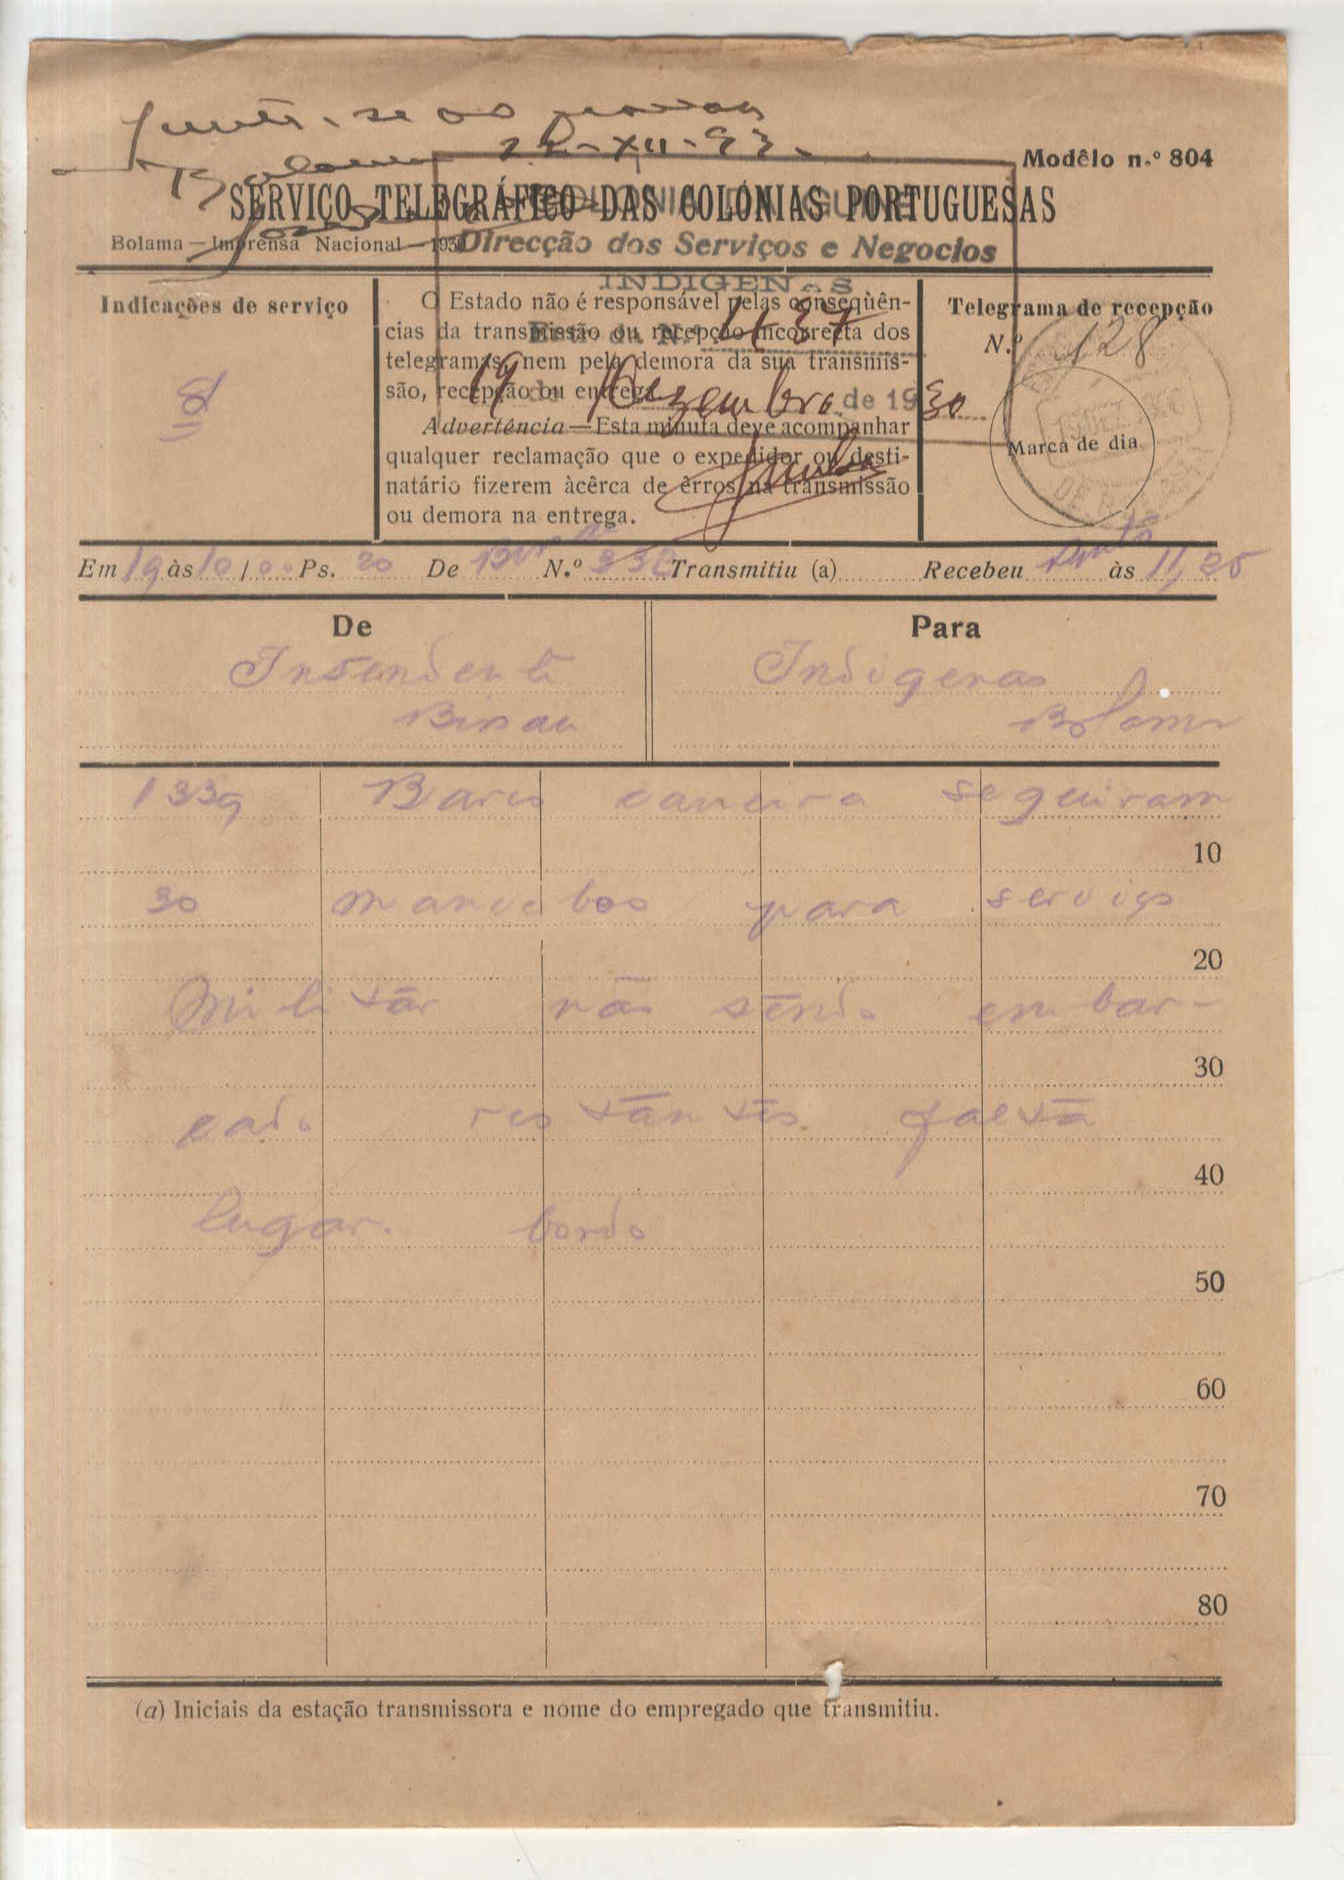 Junte-se ao processo
Bolama 22-XII-930
Modêlo n.º 804
SERVIÇO TELEGRÁFICO DAS COLÓNIAS PORTUGUESAS
Bolama — Imprensa Nacional — 193
COLONIA DA GUINÉ
Direcção dos Serviços e Negocios
INDIGENAS
Indicações de serviço
O Estado não é responsável pelas conseqùên-
cias da transmissão ou recepção incorrecta dos
telegramas, nem pela demora da sua transmis-
são, recepção ou entrega.
Advertência — Esta minuta deve acompanhar
qualquer reclamação que o expedidor ou desti-
natário fizerem àcêrca de êrros na transmissão
ou demora na entrega.
N.º 437
19 de Dezembro de 1930
Telegrama de recepção
N.º 128
Marca de dia
Em 19 às 10/00 Ps. 20 De Bissau N.º 332 Transmitiu (a) Recebeu às 11,25
De
Para
Intendente
Indigenas
Bissau
Bolama
1339 Barco carreira seguiram
10
30 mancebos para serviço
20
Militar não sendo embar-
30
cado restantes falta
40
lugar. bordo
50
60
70
80
(a) Iniciais da estação transmissora e nome do empregado que transmitiu.